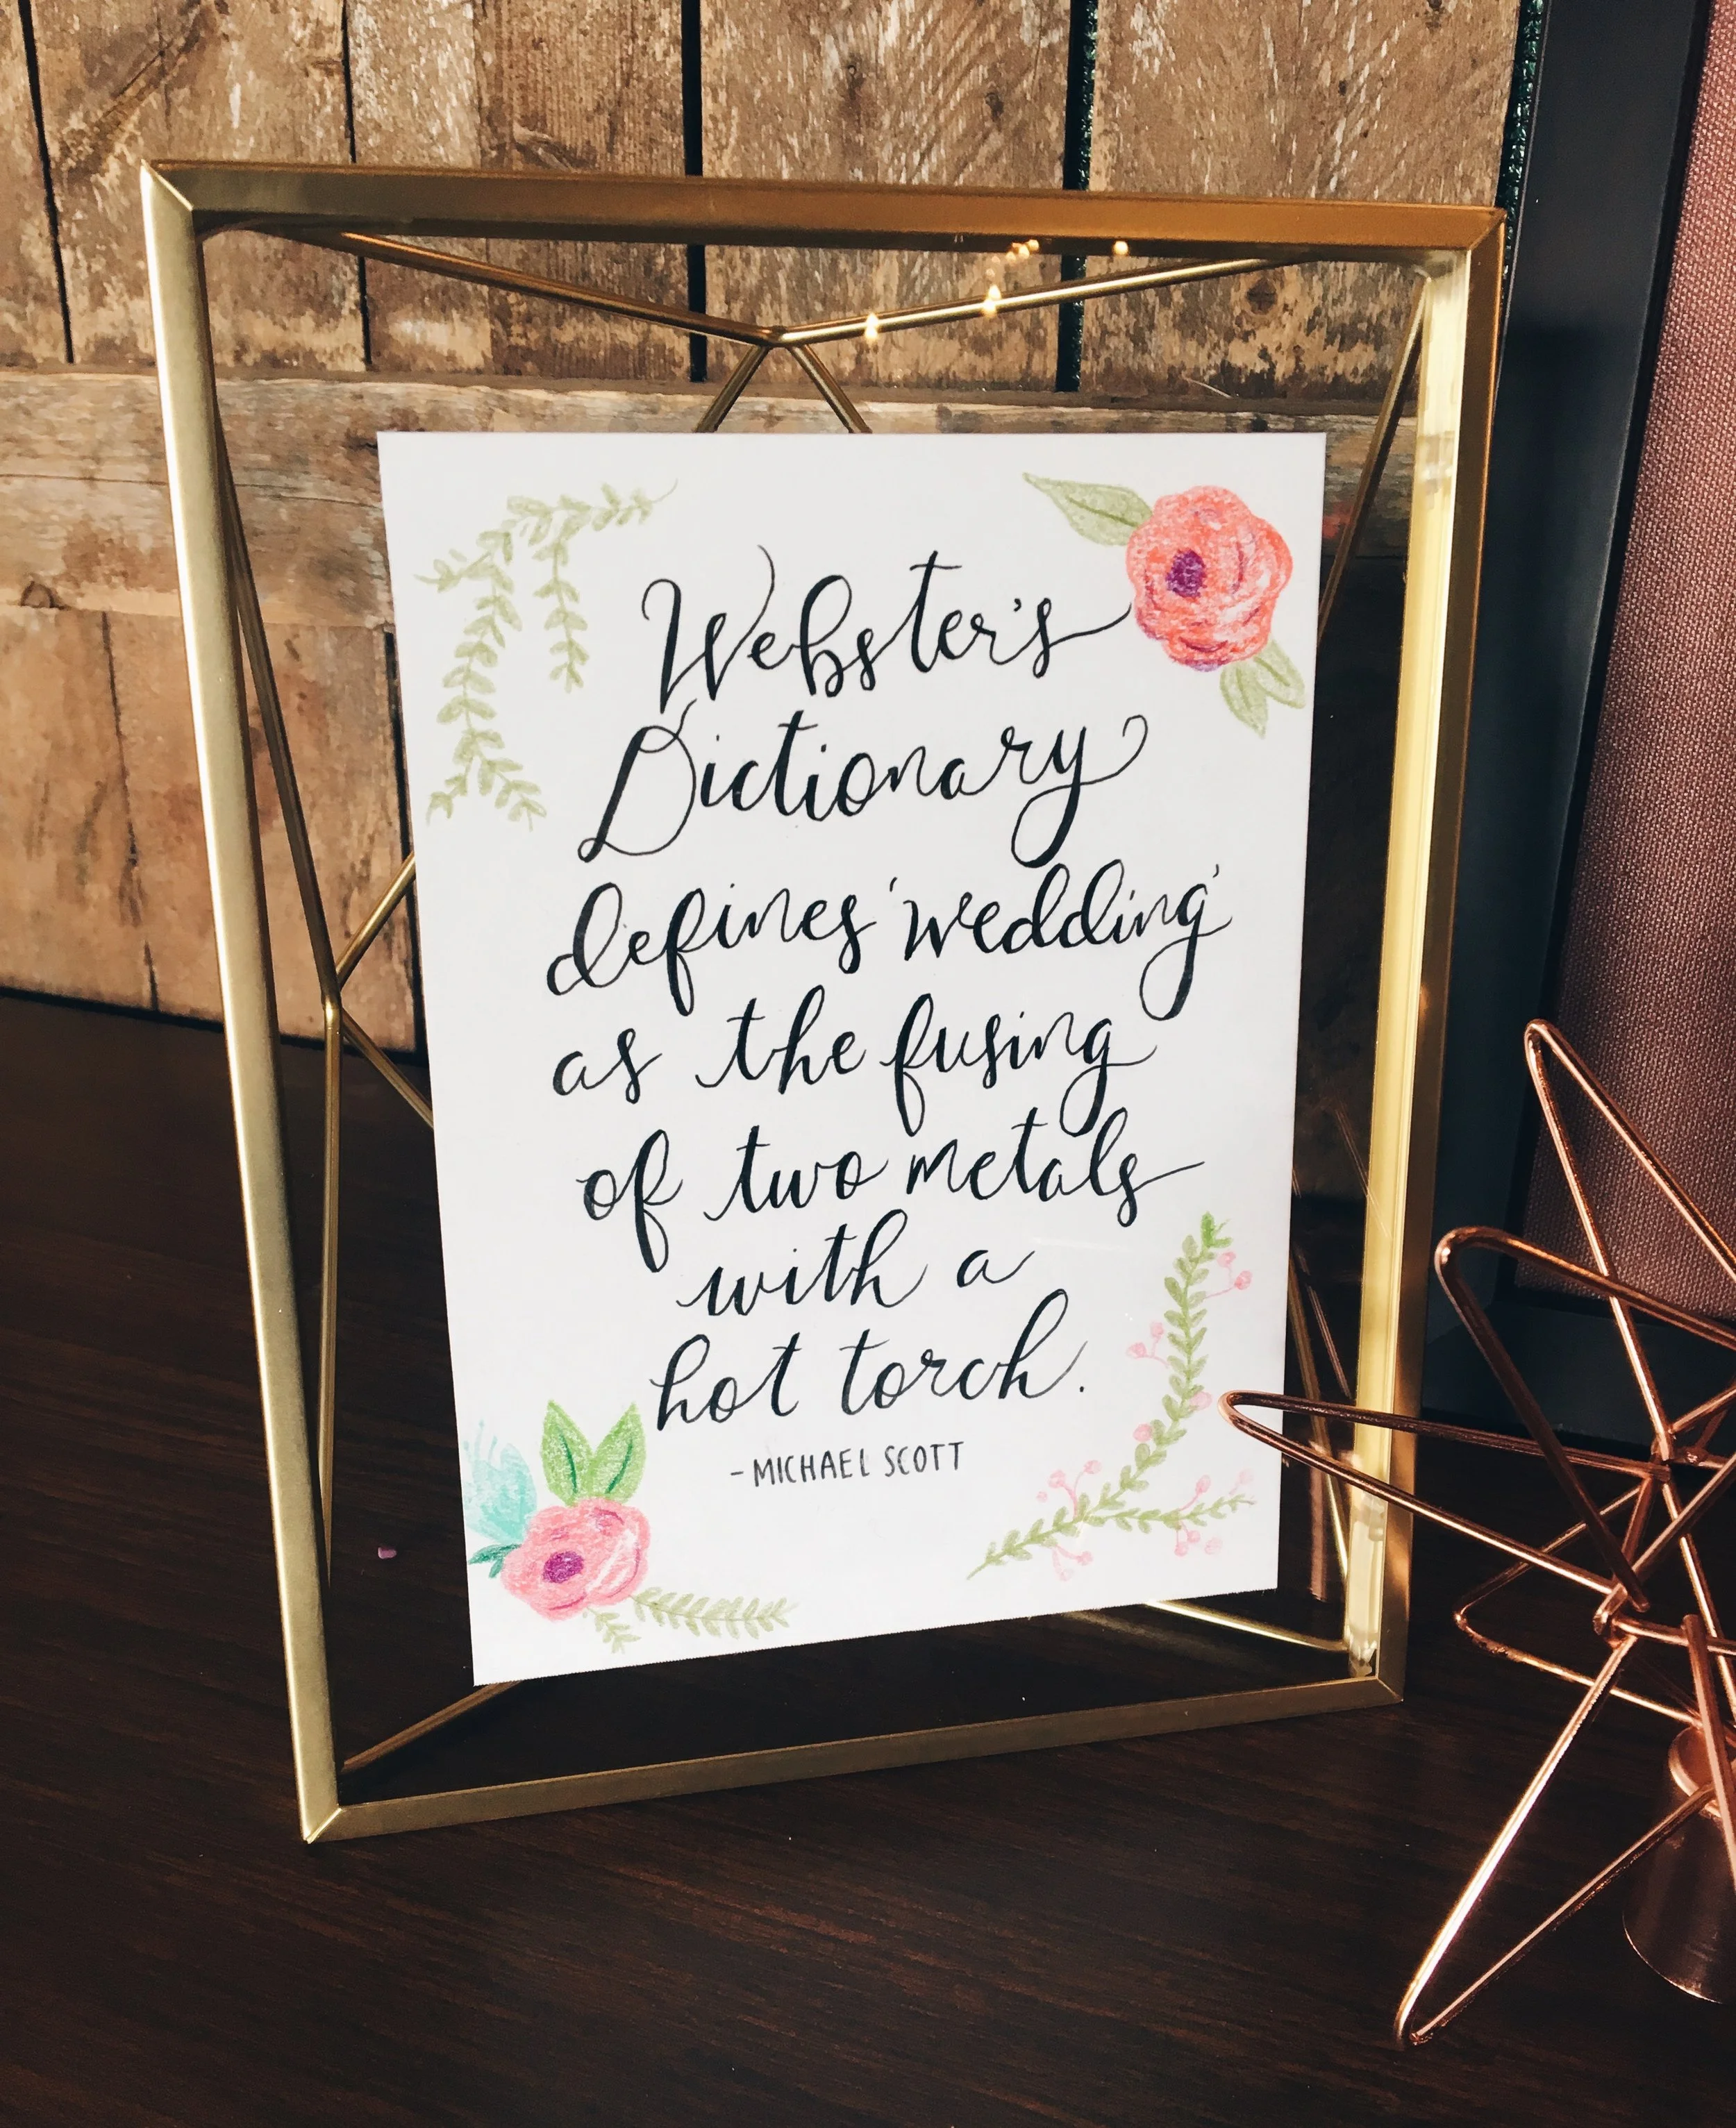 Webster's
Dictionary
defines 'wedding'
as the fusing
of two metals
with a
hot torch.
-MICHAEL SCOTT